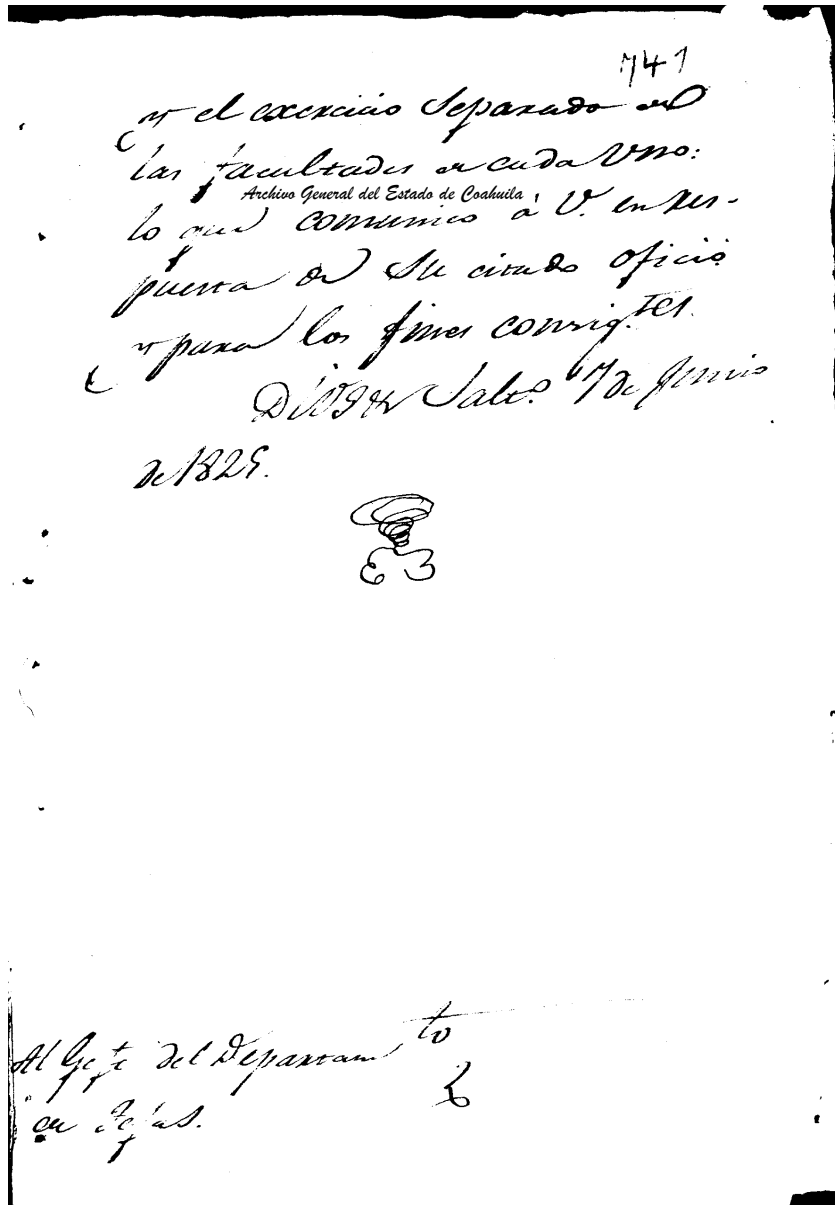 741
y el exercicio Separado de
las facultades de cada Uno:
Archivo General del Estado de Coahuila
lo que comunico á V. en res-
puesta de Su citado oficio
y para los fines consig.tes
Salt.o 7 de Junio
de 1825.
Al Gefe del Departam to
de Tejas.